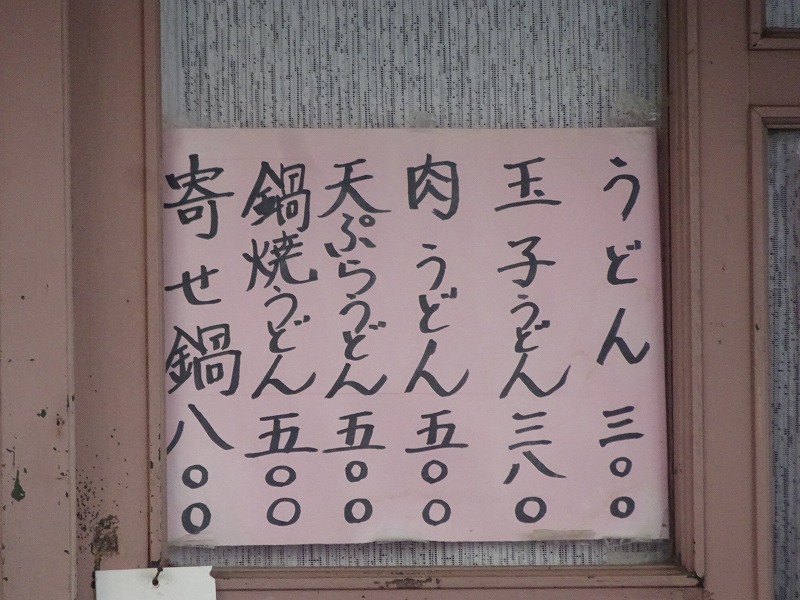 うどん 三〇〇
玉子うどん 三八〇
肉うどん 五〇〇
天ぷらうどん 五〇〇
鍋焼うどん 五〇〇
寄せ鍋 八〇〇